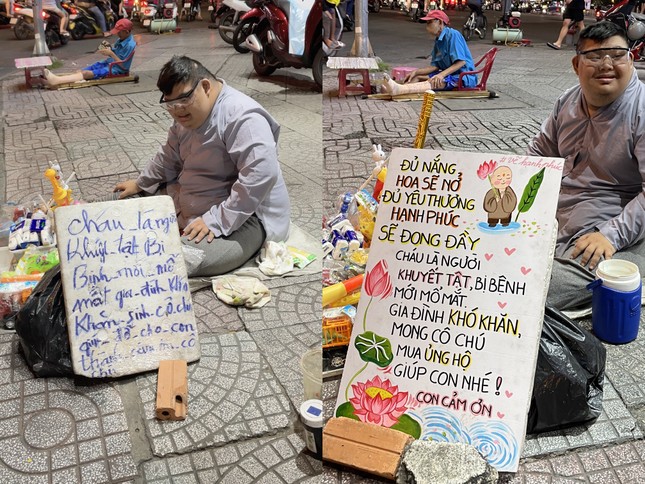 cháu là người
khuyết tật Bị
Bịnh mới mổ
mắt gia đình khó
Khăn
cô chú
cho con
cảm ơn cô
#vẽ hạnh phúc
ĐỦ NẮNG
HOA SẼ NỞ
ĐỦ YÊU THƯƠNG
HẠNH PHÚC
SẼ ĐONG ĐẦY
CHÁU LÀ NGƯỜI
KHUYẾT TẬT, BỊ BỆNH
MỚI MỔ MẮT.
GIA ĐÌNH KHÓ KHĂN,
MONG CÔ CHÚ
MUA ỦNG HỘ
GIÚP CON NHÉ!
CON CẢM ƠN